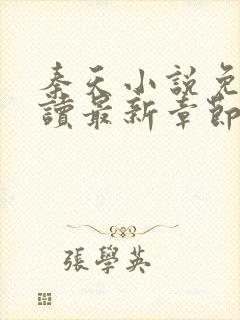 秦天小說免
讀最新章節
張學英